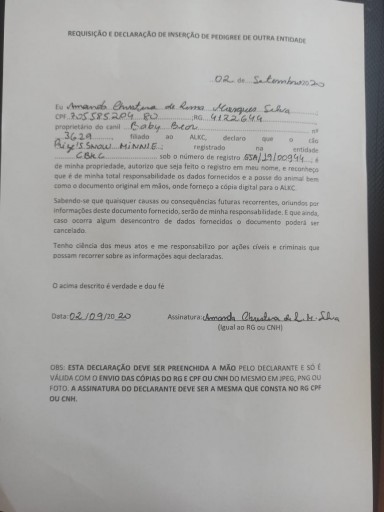 REQUISIÇÃO E DECLARAÇÃO DE INSERÇÃO DE PEDIGREE DE OUTRA ENTIDADE
02 de Setembro 2020
Eu Amanda Christina de Lima Marques Silva
CPF 705585204 80, RG 4122644,
proprietário do canil Baby Bear nº
3629, filiado ao ALKC, declaro que o cão
SNOW MINNIE, registrado na entidade
CBKC sob o número de registro /19/00944, é
de minha propriedade, autorizo que seja feito o registro em meu nome, e reconheço
que é de minha total responsabilidade os dados fornecidos e a posse do animal bem
como o documento original em mãos, onde forneço a cópia digital para o ALKC.
Sabendo-se que quaisquer causas ou consequências futuras recorrentes, oriundos por
informações deste documento fornecido, serão de minha responsabilidade. E que ainda,
caso ocorra algum desencontro de dados fornecidos o documento poderá ser
cancelado.
Tenho ciência dos meus atos e me responsabilizo por ações cíveis e criminais que
possam recorrer sobre as informações aqui declaradas.
O acima descrito é verdade e dou fé
Data: 02/09/2020 Assinatura: Amanda Christina de L. M. Silva
(Igual ao RG ou CNH)
OBS: ESTA DECLARAÇÃO DEVE SER PREENCHIDA A MÃO PELO DECLARANTE E SÓ É
VÁLIDA COM O ENVIO DAS CÓPIAS DO RG E CPF OU CNH DO MESMO EM JPEG, PNG OU
FOTO. A ASSINATURA DO DECLARANTE DEVE SER A MESMA QUE CONSTA NO RG CPF
OU CNH.